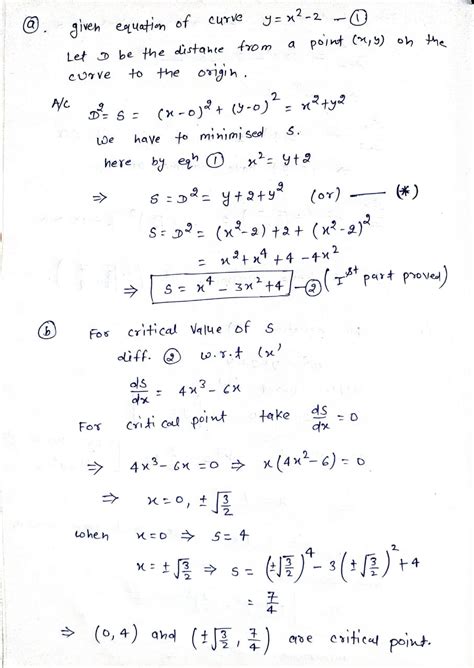 ⓐ. given equation of curve y = x² - 2 —①
Let D be the distance from a point (x,y) on the
curve to the origin.
A/c D² = S = (x-0)² + (y-0)² = x² + y²
we have to minimised S.
here by eqⁿ ① x² = y+2
⇒ S = D² = y+2+y² (or) — (*)
S = D² = (x²-2)+2+(x²-2)²
= x² + x⁴ + 4 - 4x²
⇒ S = x⁴ - 3x² + 4 —② (Ist part proved)
ⓑ For critical value of S
diff. ② w.r.t (x'
ds/dx = 4x³ - 6x
For critical point take ds/dx = 0
⇒ 4x³ - 6x = 0 ⇒ x(4x² - 6) = 0
⇒ x = 0, ±√(3/2)
when x = 0 ⇒ S = 4
x = ±√(3/2) ⇒ S = (±√(3/2))⁴ - 3(±√(3/2))² + 4
= 7/4
⇒ (0,4) and (±√(3/2), 7/4) are critical point.